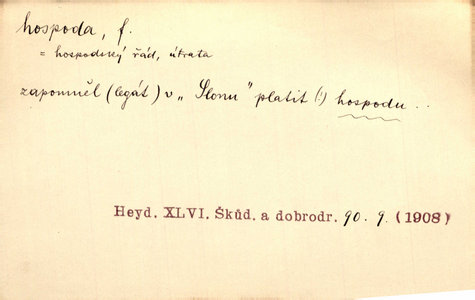 hospoda, f.
= hospodský řád, útrata
zapomněl (legát) v „Slonu" platit (!) hospodu ..
Heyd. XLVI. Škůd. a dobrodr. 90. 9. (1908)